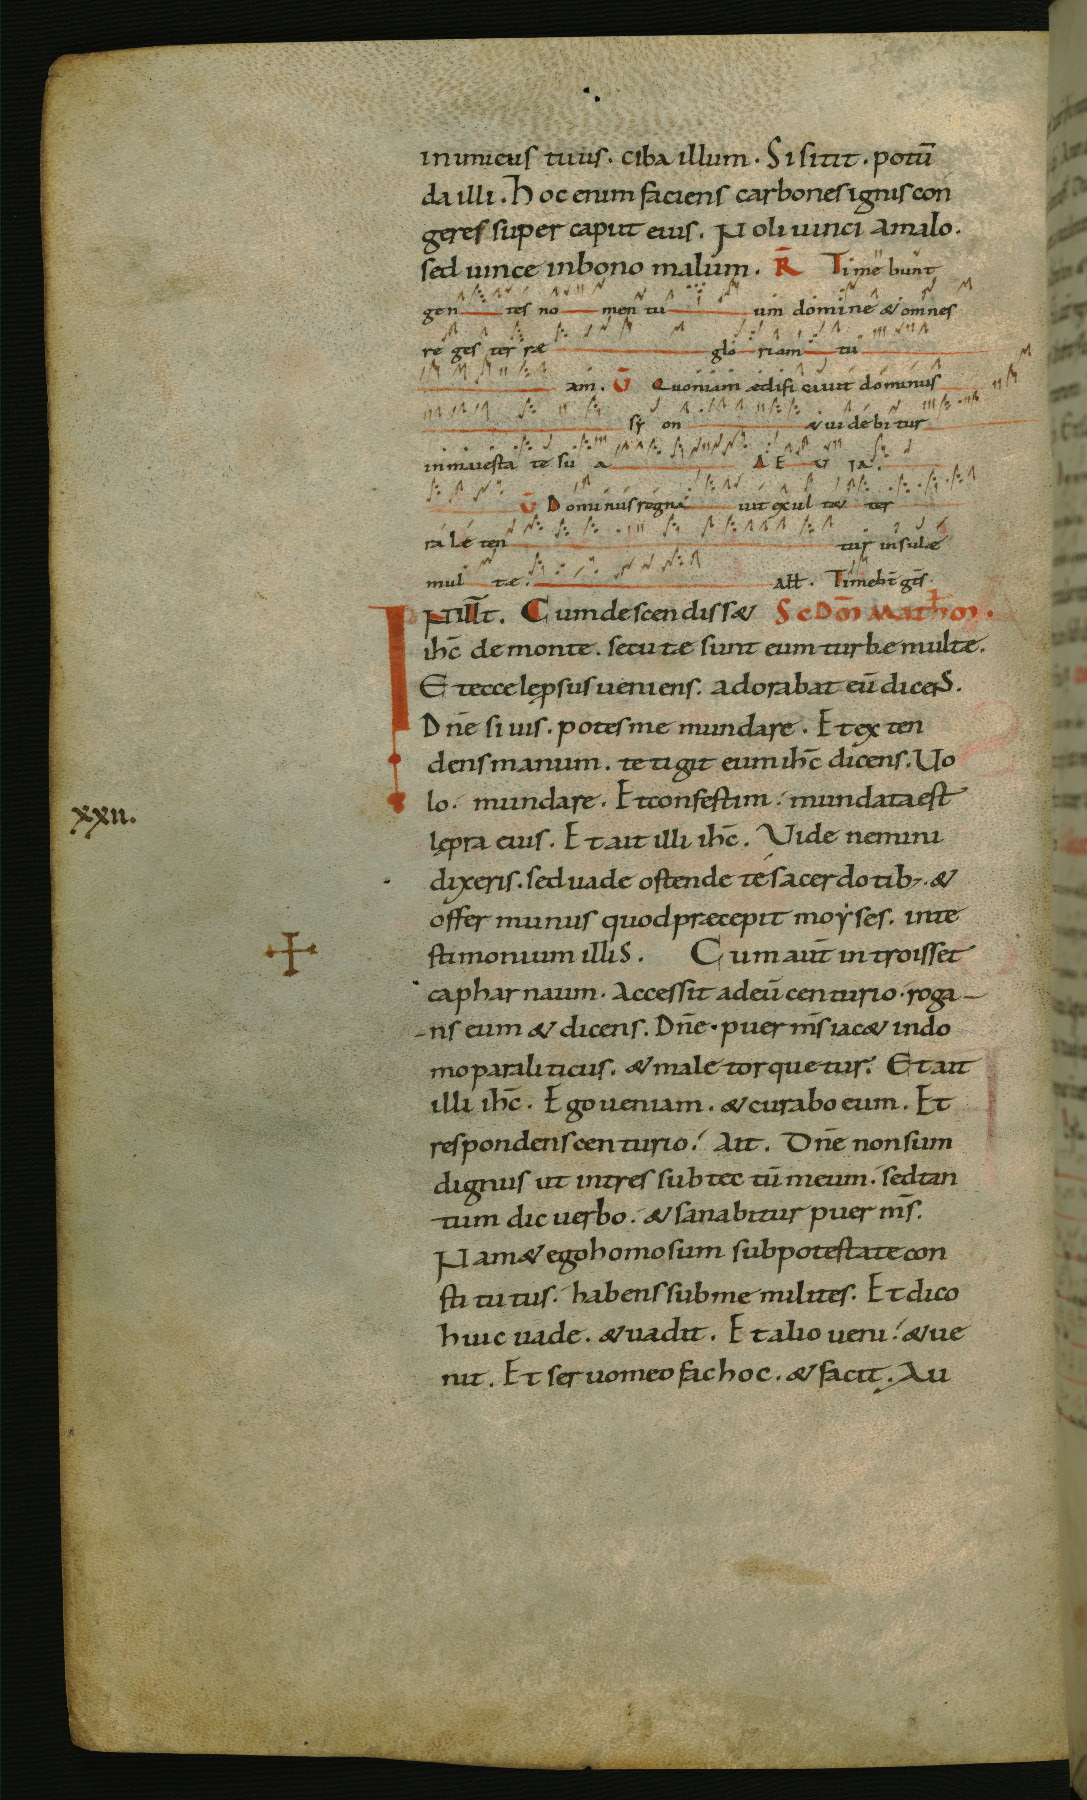 inimicus tuus. ciba illum. Si sitit. potū
da illi. Hoc enim faciens carbones ignis con
geres super caput eius. Noli uinci amalo.
sed uince inbono malum. R̄ Timebunt
gen tes no men tu um domine & omnes
re ges ter ræ glo riam tu
am. V̄ Quoniam ædificauit dominus
sy on & uidebitur
inmaiesta te su a A E U IA.
V̄ Dominus regna uit exul t& ter
ra læten tur insulæ
mul tæ. All. Timebt gts.
IN illt. Cum descendiss& Sc̄d̄m Math̄m.
ihc̄ de monte. secutæ sunt eum turbæ multæ.
Et ecce lęprsus ueniens. adorabat eū dicens.
Dn̄e si uis. potes me mundare. Et exten
dens manum. tetigit eum ihc̄ dicens. Uo
lo. mundare. Et confestim. mundata est
xxii.
lępra eius. Et ait illi ihc̄. Uide nemini
dixeris. sed uade ostende te sacerdotib;. &
offer munus quod præcepit moyses. inte
stimonium illis. Cum aut̄ introisset
capharnaum. Accessit adeū centurio. roga-
-ns eum & dicens. Dn̄e. puer ms̄ iac& indo
mo paraliticus. & male torquetur. Et ait
illi ihc̄. Ego ueniam. & curabo eum. Et
respondens centurio. Ait. Dn̄e non sum
dignus ut intres sub tectū meum. sed tan
tum dic uerbo. & sanabitur puer ms̄.
Nam & ego homo sum sub potestate con
stitutus. habens sub me milites. Et dico
huic uade. & uadit. Et alio ueni. & ue
nit. Et seruo meo fac hoc. & facit. Au